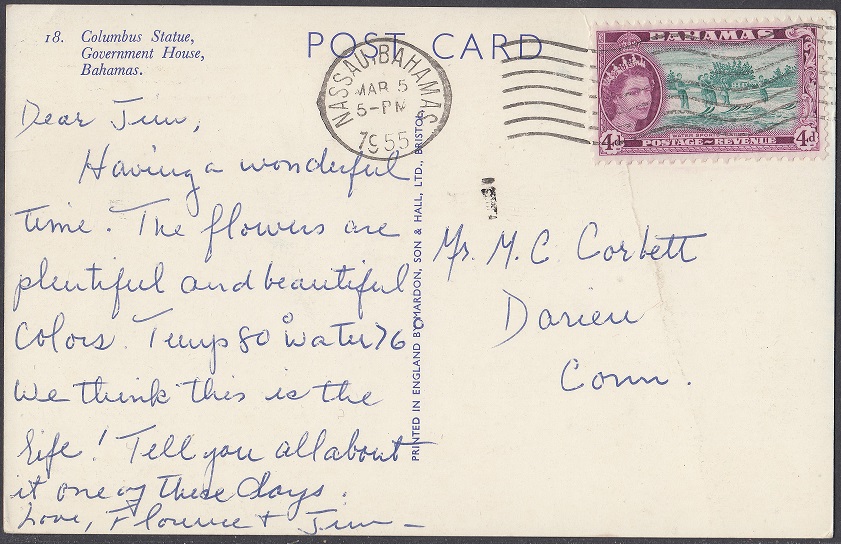 18. Columbus Statue,
Government House,
Bahamas.
POST CARD
NASSAU·BAHAMAS
MAR 5
5-PM
1955
BAHAMAS
4d 4d
POSTAGE~REVENUE
Dear Jim,
Having a wonderful
time. The flowers are
plentiful and beautiful
colors. Temp 80° water 76°
We think this is the
life! Tell you all about
it one of these days.
Love, Florence + Jim -
PRINTED IN ENGLAND BY MARDON, SON & HALL, LTD., BRISTOL
Mr. M. C. Corbett
Darien
Conn.